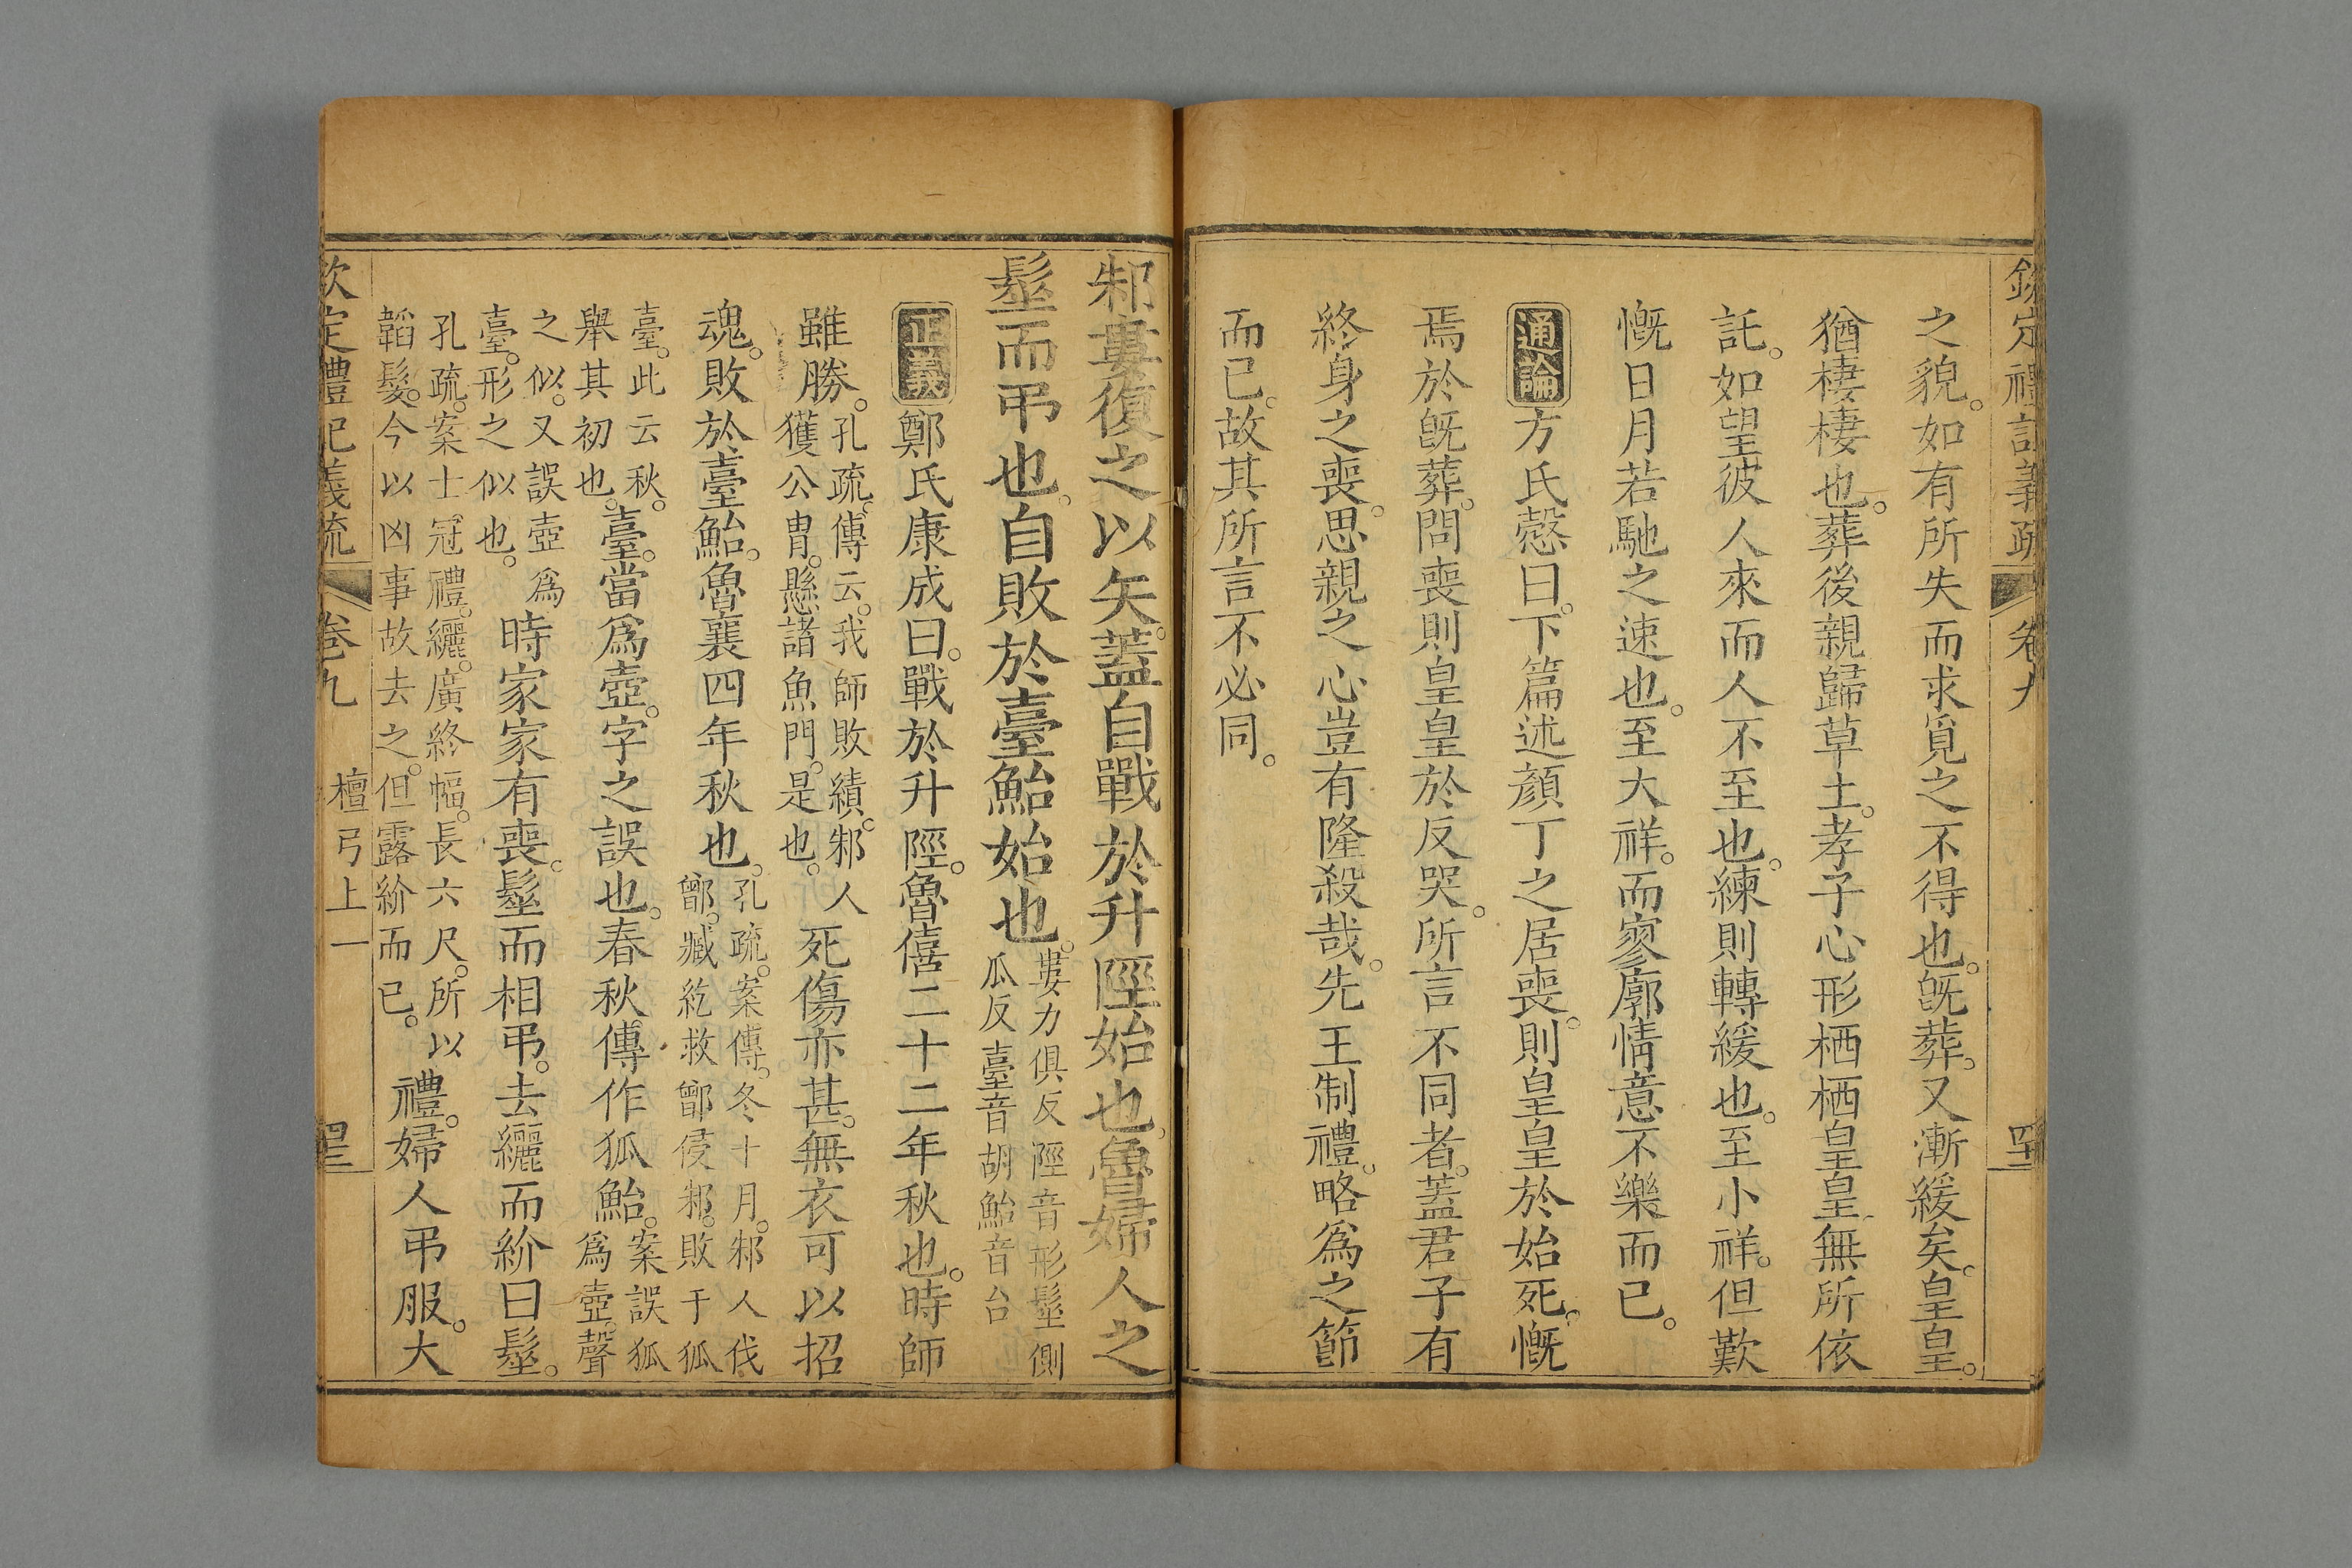 欽定禮記義疏 卷九
之貌。如有所失而求覓之不得也。旣葬。又漸緩矣。皇皇。
猶棲棲也。葬後親歸草土。孝子心形栖栖皇皇無所依
託。如望彼人來而人不至也。練則轉緩也。至小祥。但歎
慨日月若馳之速也。至大祥。而寥廓情意不樂而已。
通論 方氏慤曰。下篇述顏丁之居喪。則皇皇於始死。慨
焉於旣葬。問喪則皇皇於反哭。所言不同者。蓋君子有
終身之喪。思親之心豈有隆殺哉。先王制禮。略爲之節
而已。故其所言不必同。
邾婁復之以矢。蓋自戰於升陘始也。魯婦人之
髽而弔也。自敗於臺鮐始也。婁力俱反陘音形髽側
瓜反臺音胡鮐音台
正義 鄭氏康成曰。戰於升陘。魯僖二十二年秋也。時師
雖勝。孔疏。傳云。我師敗績。邾人
獲公冑。懸諸魚門。是也。死傷亦甚。無衣可以招
魂。敗於臺鮐。魯襄四年秋也。孔疏。案傳。冬十月。邾人伐
鄫。臧紇救鄫侵邾。敗于狐
臺。此云秋。
舉其初也。臺。當爲壺。字之誤也。春秋傳作狐鮐。案誤狐
爲壺。聲
之似。又誤壺爲
臺。形之似也。時家家有喪。髽而相弔。去纚而紒曰髽。
孔疏。案士冠禮。纚。廣終幅。長六尺。所以
韜髮。今以凶事故去之。但露紒而已。禮。婦人弔服。大
欽定禮記義疏 卷九 檀弓上一